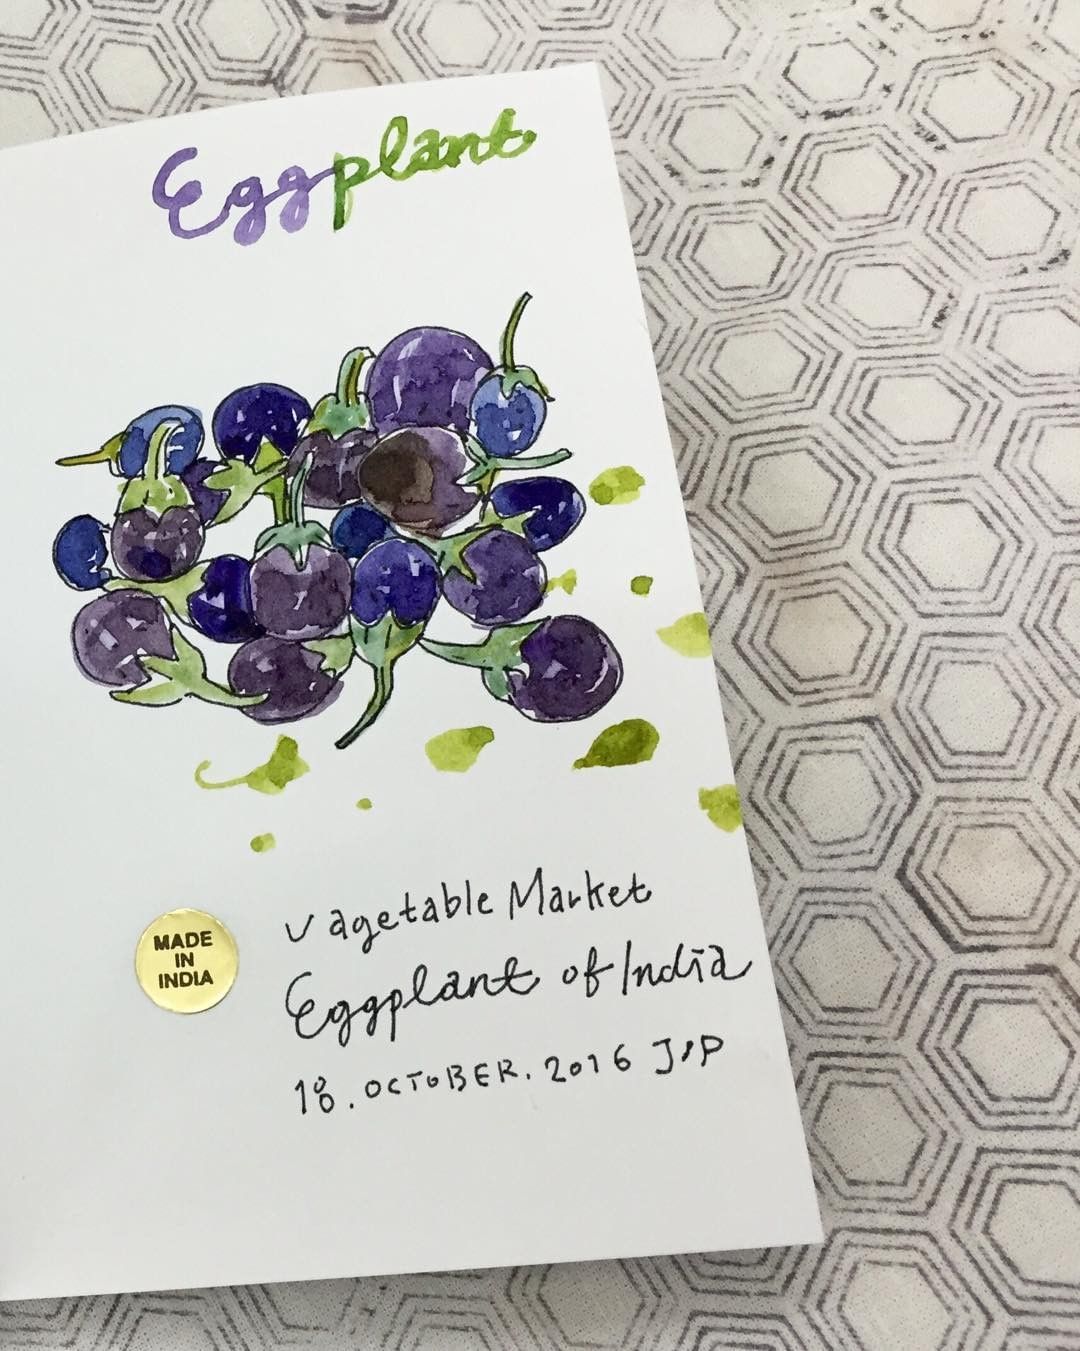 Eggplant
MADE
IN
INDIA
vagetable Market
Eggplant of India
18.OCTOBER.2016 J&P